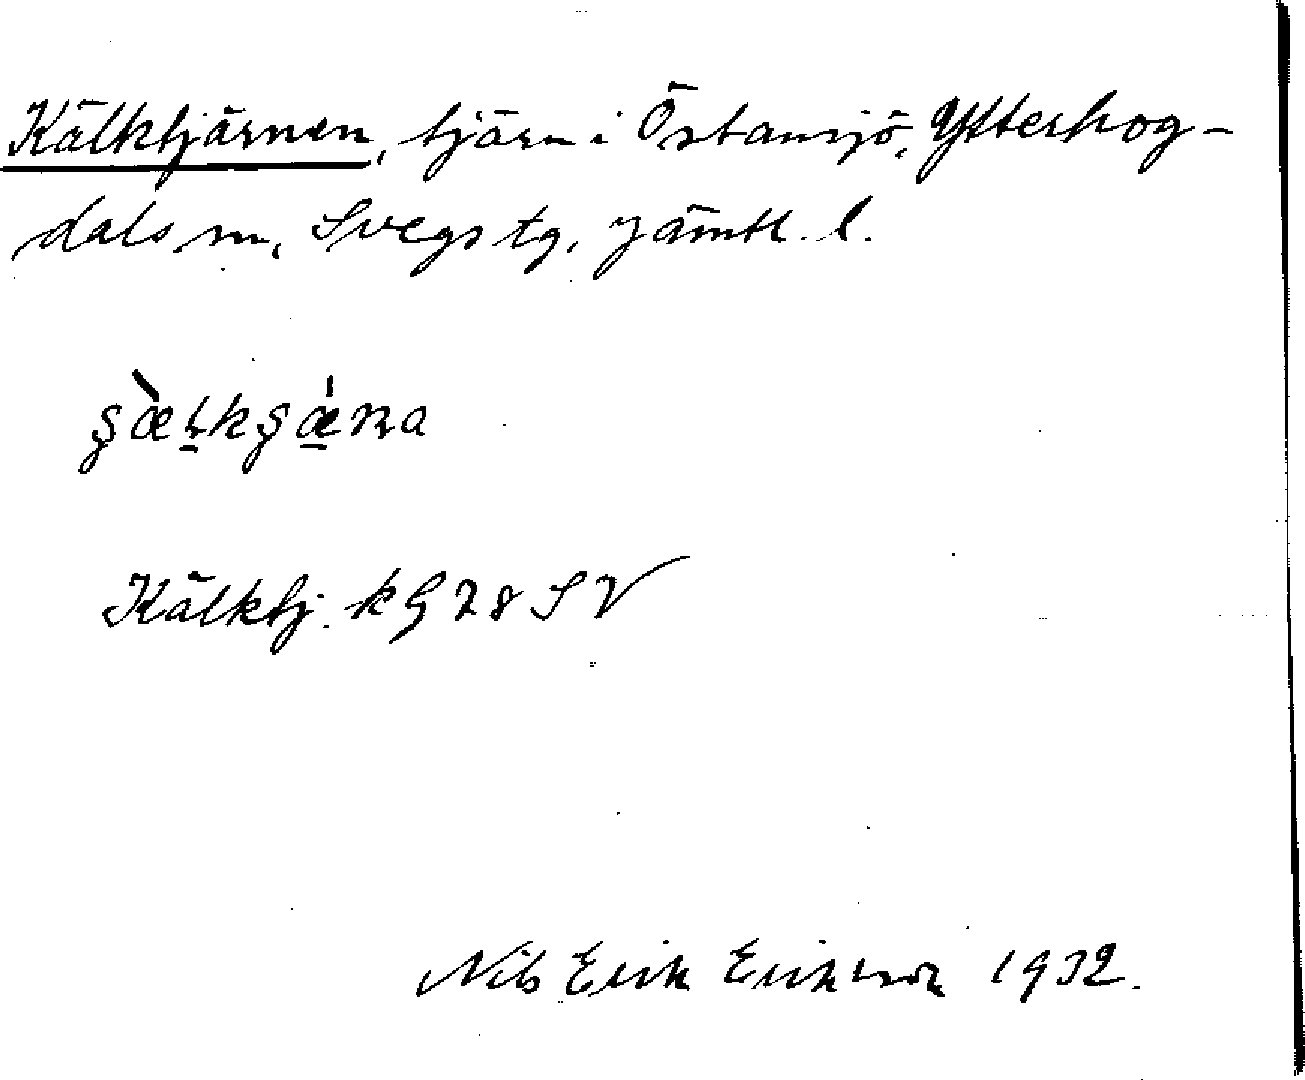 Kälktjärnen, tjärn i Östansjö, Ytterhog-
dals sn, Svegs tg, Jämtl. l.
ʂæ̀ḷkʂǽṇa
Kälktj. k G 28 SV
Nils Erik Eriksson 1932.